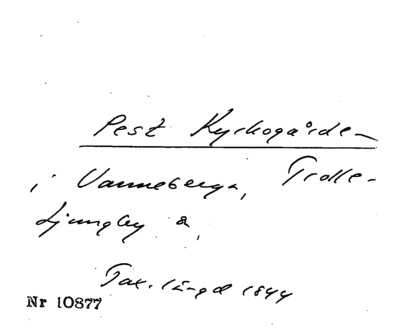 Pest Kyrkogårde-
i Vanneberga, Trolle-
Ljungby s,
Tax. längd 1844
Nr 10877